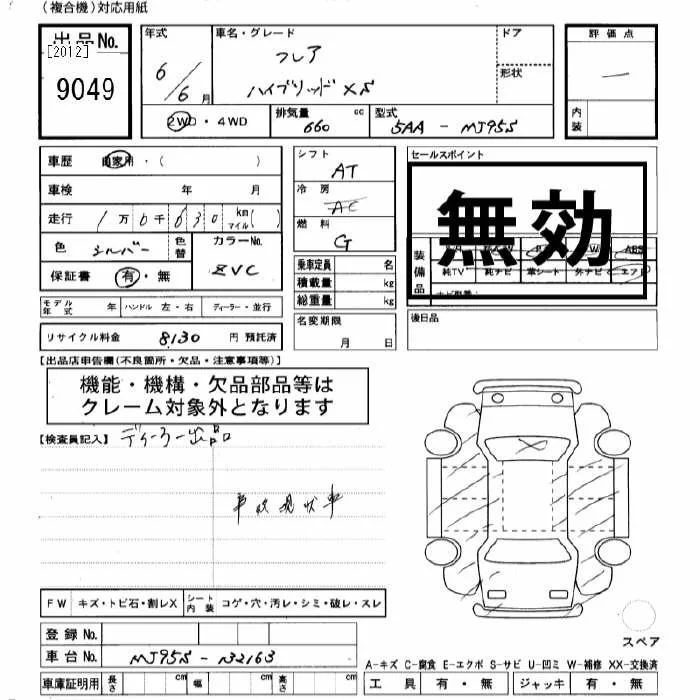 (複合機)対応用紙
出品No.
[2012]
9049
年式
6/6月
車名・グレード
フレア
ハイブリッドXS
ドア
形状
評価点
内装
2WD・4WD
排気量 660 cc
型式 5AA - MJ95S
車歴 自家用・( )
車検 年 月
走行 1万6千630 km マイル( )
色 シルバー 色替
カラーNo. ZVC
保証書 有・無
モデル年式 年 ハンドル 左・右 ディーラー・並行
リサイクル料金 8130 円 預託済
シフト AT
冷房 AC
燃料 G
乗車定員 名
積載量 kg
総重量 kg
名変期限 月 日
セールスポイント
無効
装備品
純TV 純ナビ 革シート 外ナビ エアB
後日品
【出品店申告欄(不良箇所・欠品・注意事項等)】
機能・機構・欠品部品等は
クレーム対象外となります
【検査員記入】 ディーラー出品
事故現状車
FW キズ・トビ石・割レX シート内装 コゲ・穴・汚レ・シミ・破レ・スレ
登録No.
車台No. MJ95S - 132163
車庫証明用 長さ cm 幅 cm 高さ cm
スペア
A-キズ C-腐食 E-エクボ S-サビ U-凹ミ W-補修 XX-交換済
工具 有・無 ジャッキ 有・無